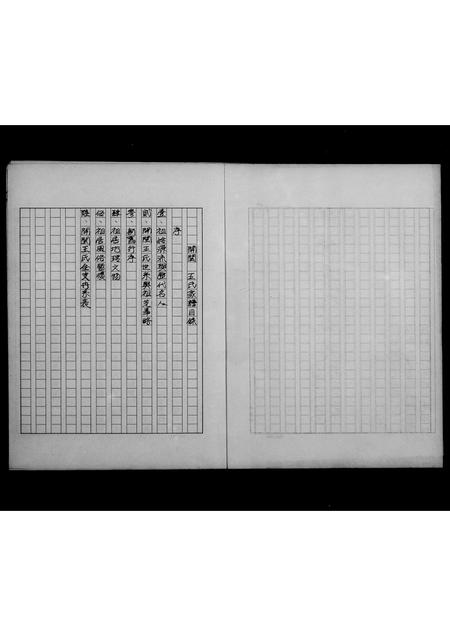 開閩 王氏家譜目錄
序
壹、祖姓源流與歷代名人
貳、開閩王氏世系與祖先事略
參、朝舊行序
肆、祖居地理文物
伍、祖居風俗習慣
陸、開閩王氏全臺仍系表